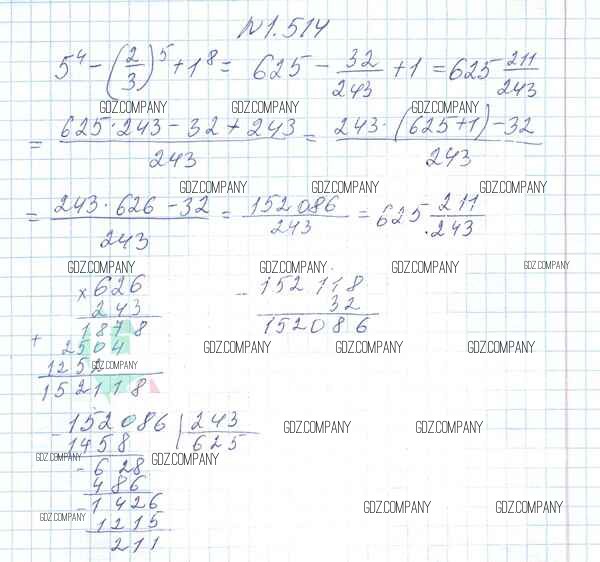 №1.514
5⁴ − (2/3)⁵ + 1⁸ = 625 − 32/243 + 1 = 625 211/243
GDZ.COMPANY GDZ.COMPANY GDZ.COMPANY
= (625·243 − 32 + 243)/243 = (243·(625+1) − 32)/243
GDZ.COMPANY GDZ.COMPANY GDZ.COMPANY
= (243·626 − 32)/243 = 152086/243 = 625 211/243
GDZ.COMPANY GDZ.COMPANY GDZ.COMPANY GDZ.COMPANY
×626 −152118
243 32
1878 152086
+ 2504
GDZ.COMPANY GDZ.COMPANY GDZ.COMPANY
1252 GDZ.COMPANY
152118
−152086 | 243
1458 625
GDZ.COMPANY GDZ.COMPANY
GDZ.COMPANY GDZ.COMPANY
−628
486
−1426
GDZ.COMPANY GDZ.COMPANY
1215
GDZ.COMPANY
211